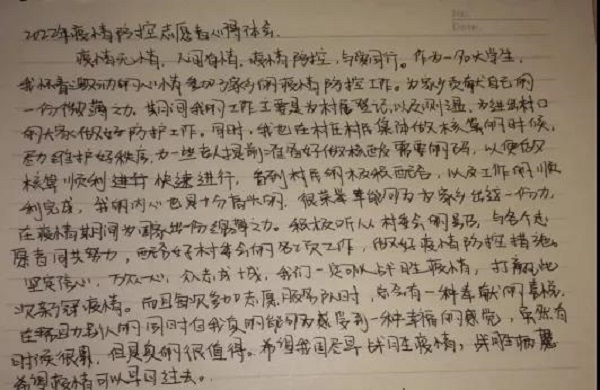 2022年疫情防控志愿者心得体会
疫情无情,人间有情,疫情防控,与爱同行。作为一名大学生,
我怀着激动的心情参加了家乡的疫情防控工作。为家乡贡献自己的
一份微薄之力。期间我的工作主要是为村居登记,以及测温,为进出村口
的大家做好防护工作。同时,我也在村庄村民集体做核酸的时候,
尽力维护好秩序,为一些老人提前准备好做核酸需要的码,以便做
核算顺利进行快速进行,看到村民的积极配合,以及工作的顺
利完成,我的内心也是十分高兴的。很荣幸能够为家乡出这一份力,
在疫情期间为国家出一份绵薄之力。积极听从村委会的号召,与各个志
愿者同共努力,配合好村委会的各项工作,做好疫情防控措施。
坚定信心,万众一心,众志成城,我们一定可以战胜疫情,打赢此
次新冠疫情。而且每次参加志愿服务队时,总会有一种奉献的喜悦,
在帮助别人的同时但我真的能够感受到一种幸福的感觉,虽然有
时候很累,但是真的很值得。希望我国尽早战胜疫情,战胜病
希望疫情可以早日过去。